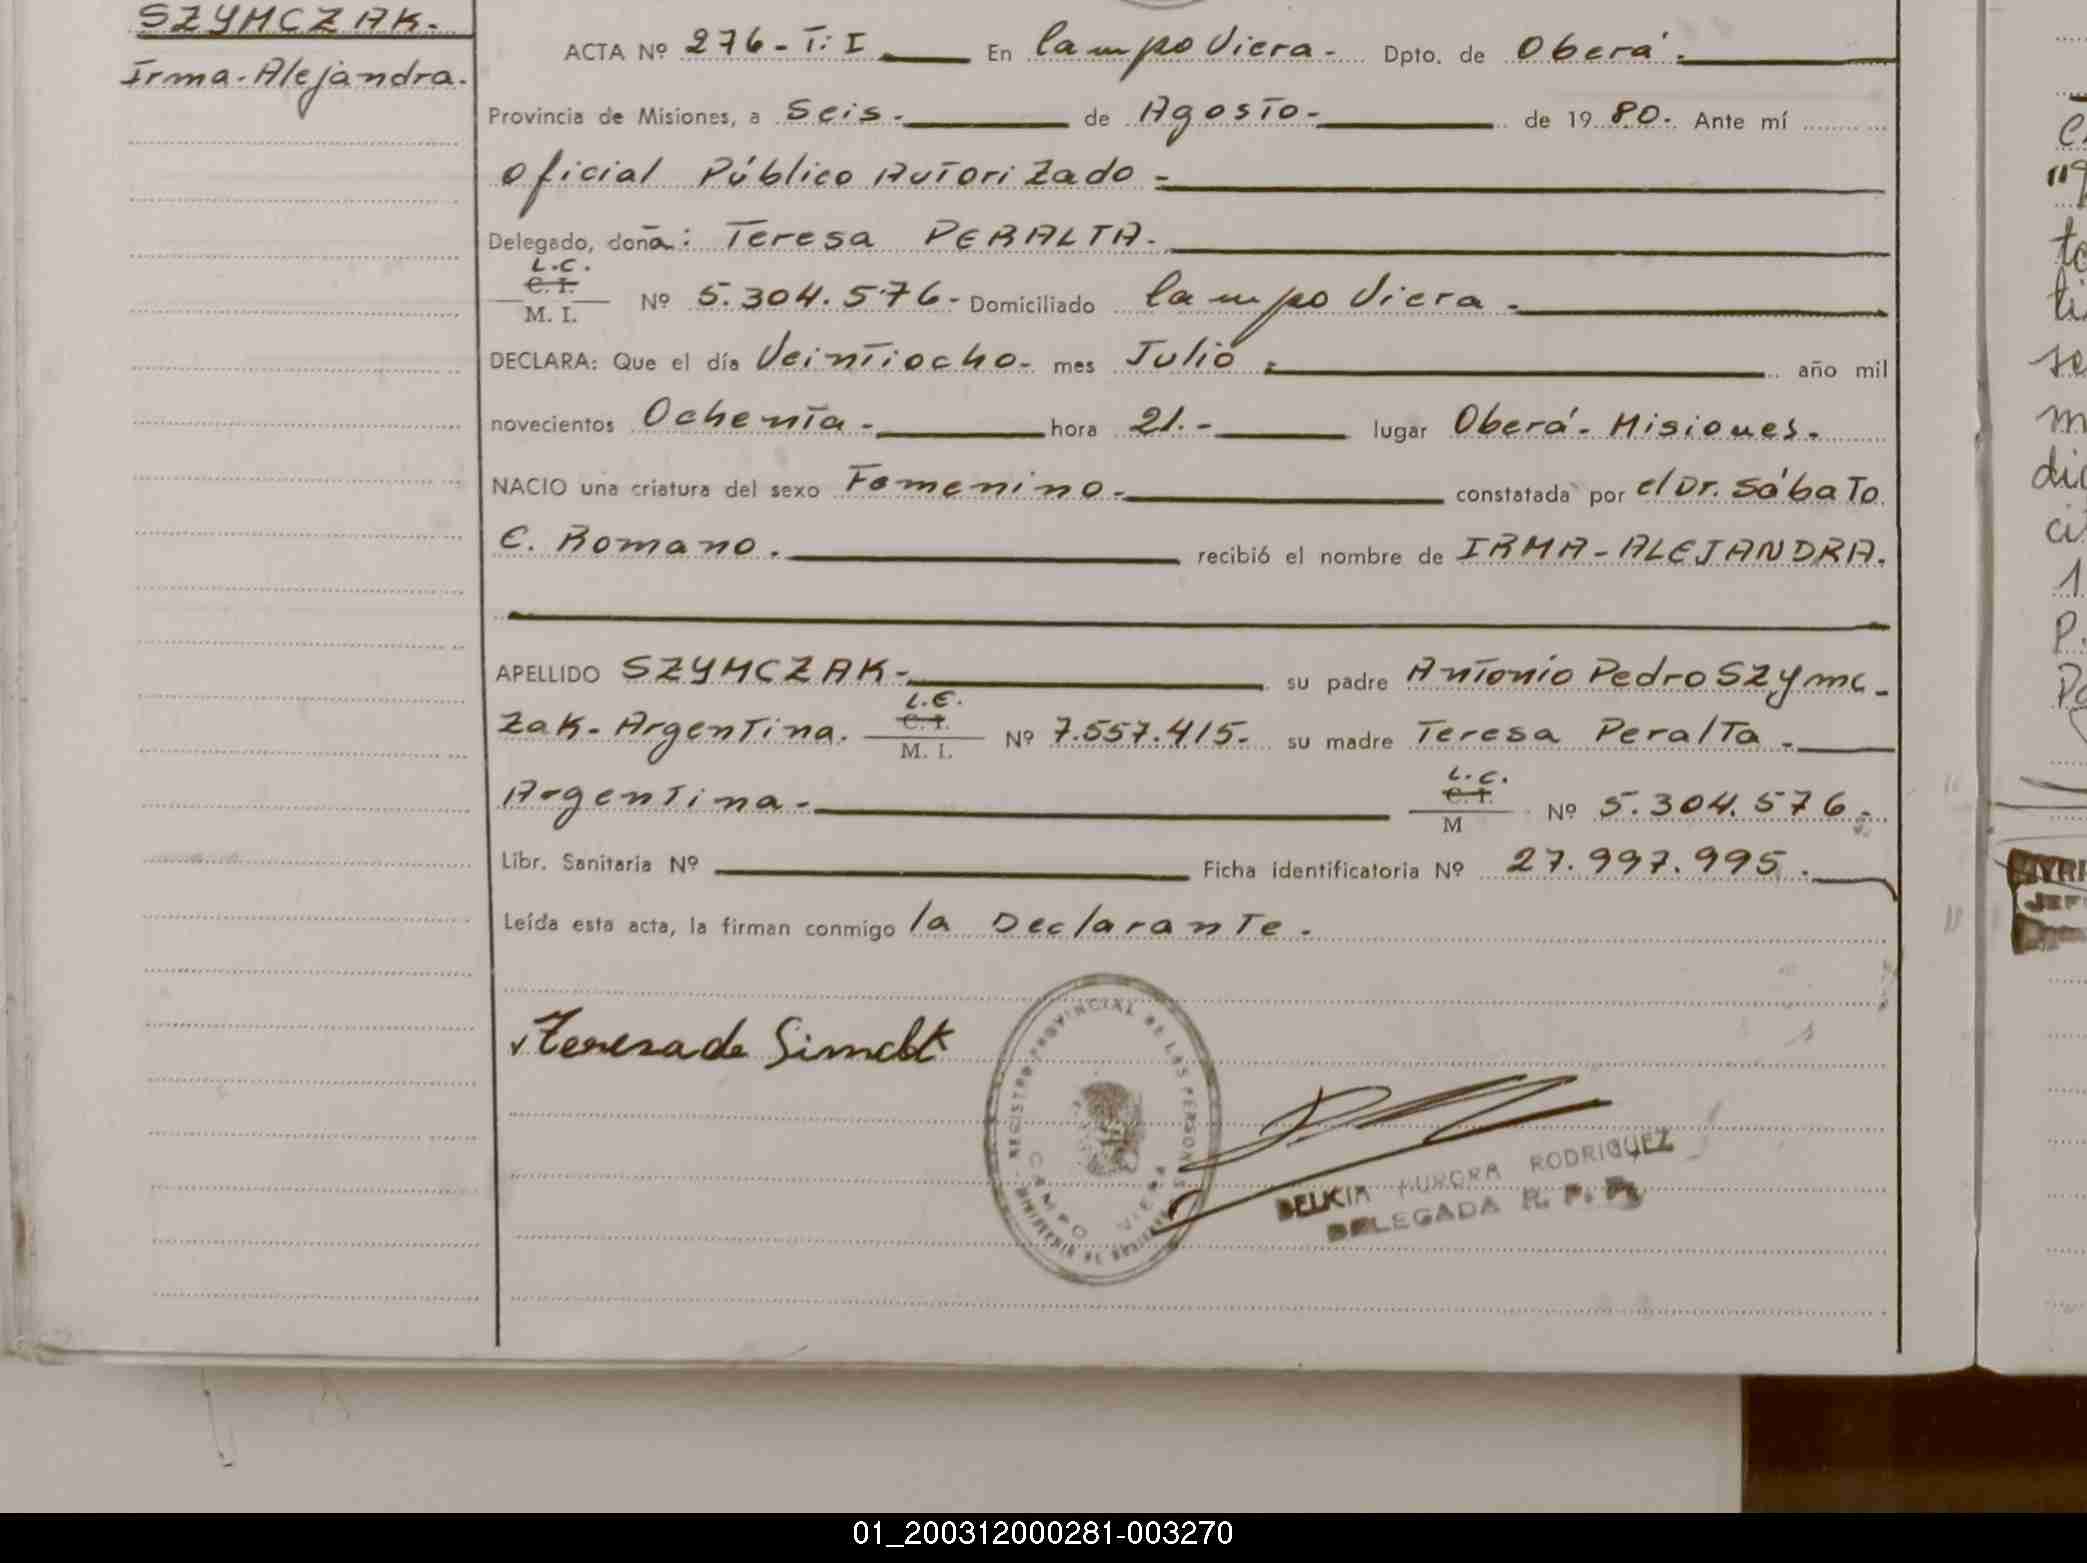 SZYMCZAK.
Irma-Alejandra.
ACTA Nº 276-T: I En Campo Viera- Dpto. de Oberá.
Provincia de Misiones, a Seis- de Agosto- de 1980. Ante mí
Oficial Público Autorizado-
Delegado, doña: Teresa PERALTA.
L.C.
C. I.
M. I. Nº 5.304.576- Domiciliado Campo Viera-
DECLARA: Que el día Veintiocho- mes Julio- año mil
novecientos Ochenta- hora 21.- lugar Oberá- Misiones.
NACIO una criatura del sexo Femenino- constatada por el Dr. Sábato
E. Romano. recibió el nombre de IRMA-ALEJANDRA.
APELLIDO SZYMCZAK- su padre Antonio Pedro Szymc-
zak- Argentina. L.E. C. I. M. I. Nº 7.557.415- su madre Teresa Peralta-
Argentina- L.C. C. I. M Nº 5.304.576-
Libr. Sanitaria Nº Ficha identificatoria Nº 27.997.995.
Leída esta acta, la firman conmigo la Declarante.
Teresa de
REGISTRO PROVINCIAL DE LAS PERSONAS
CAMPO VIERA
BELKIA AURORA RODRIGUEZ
DELEGADA R. P. P.
01_200312000281-003270